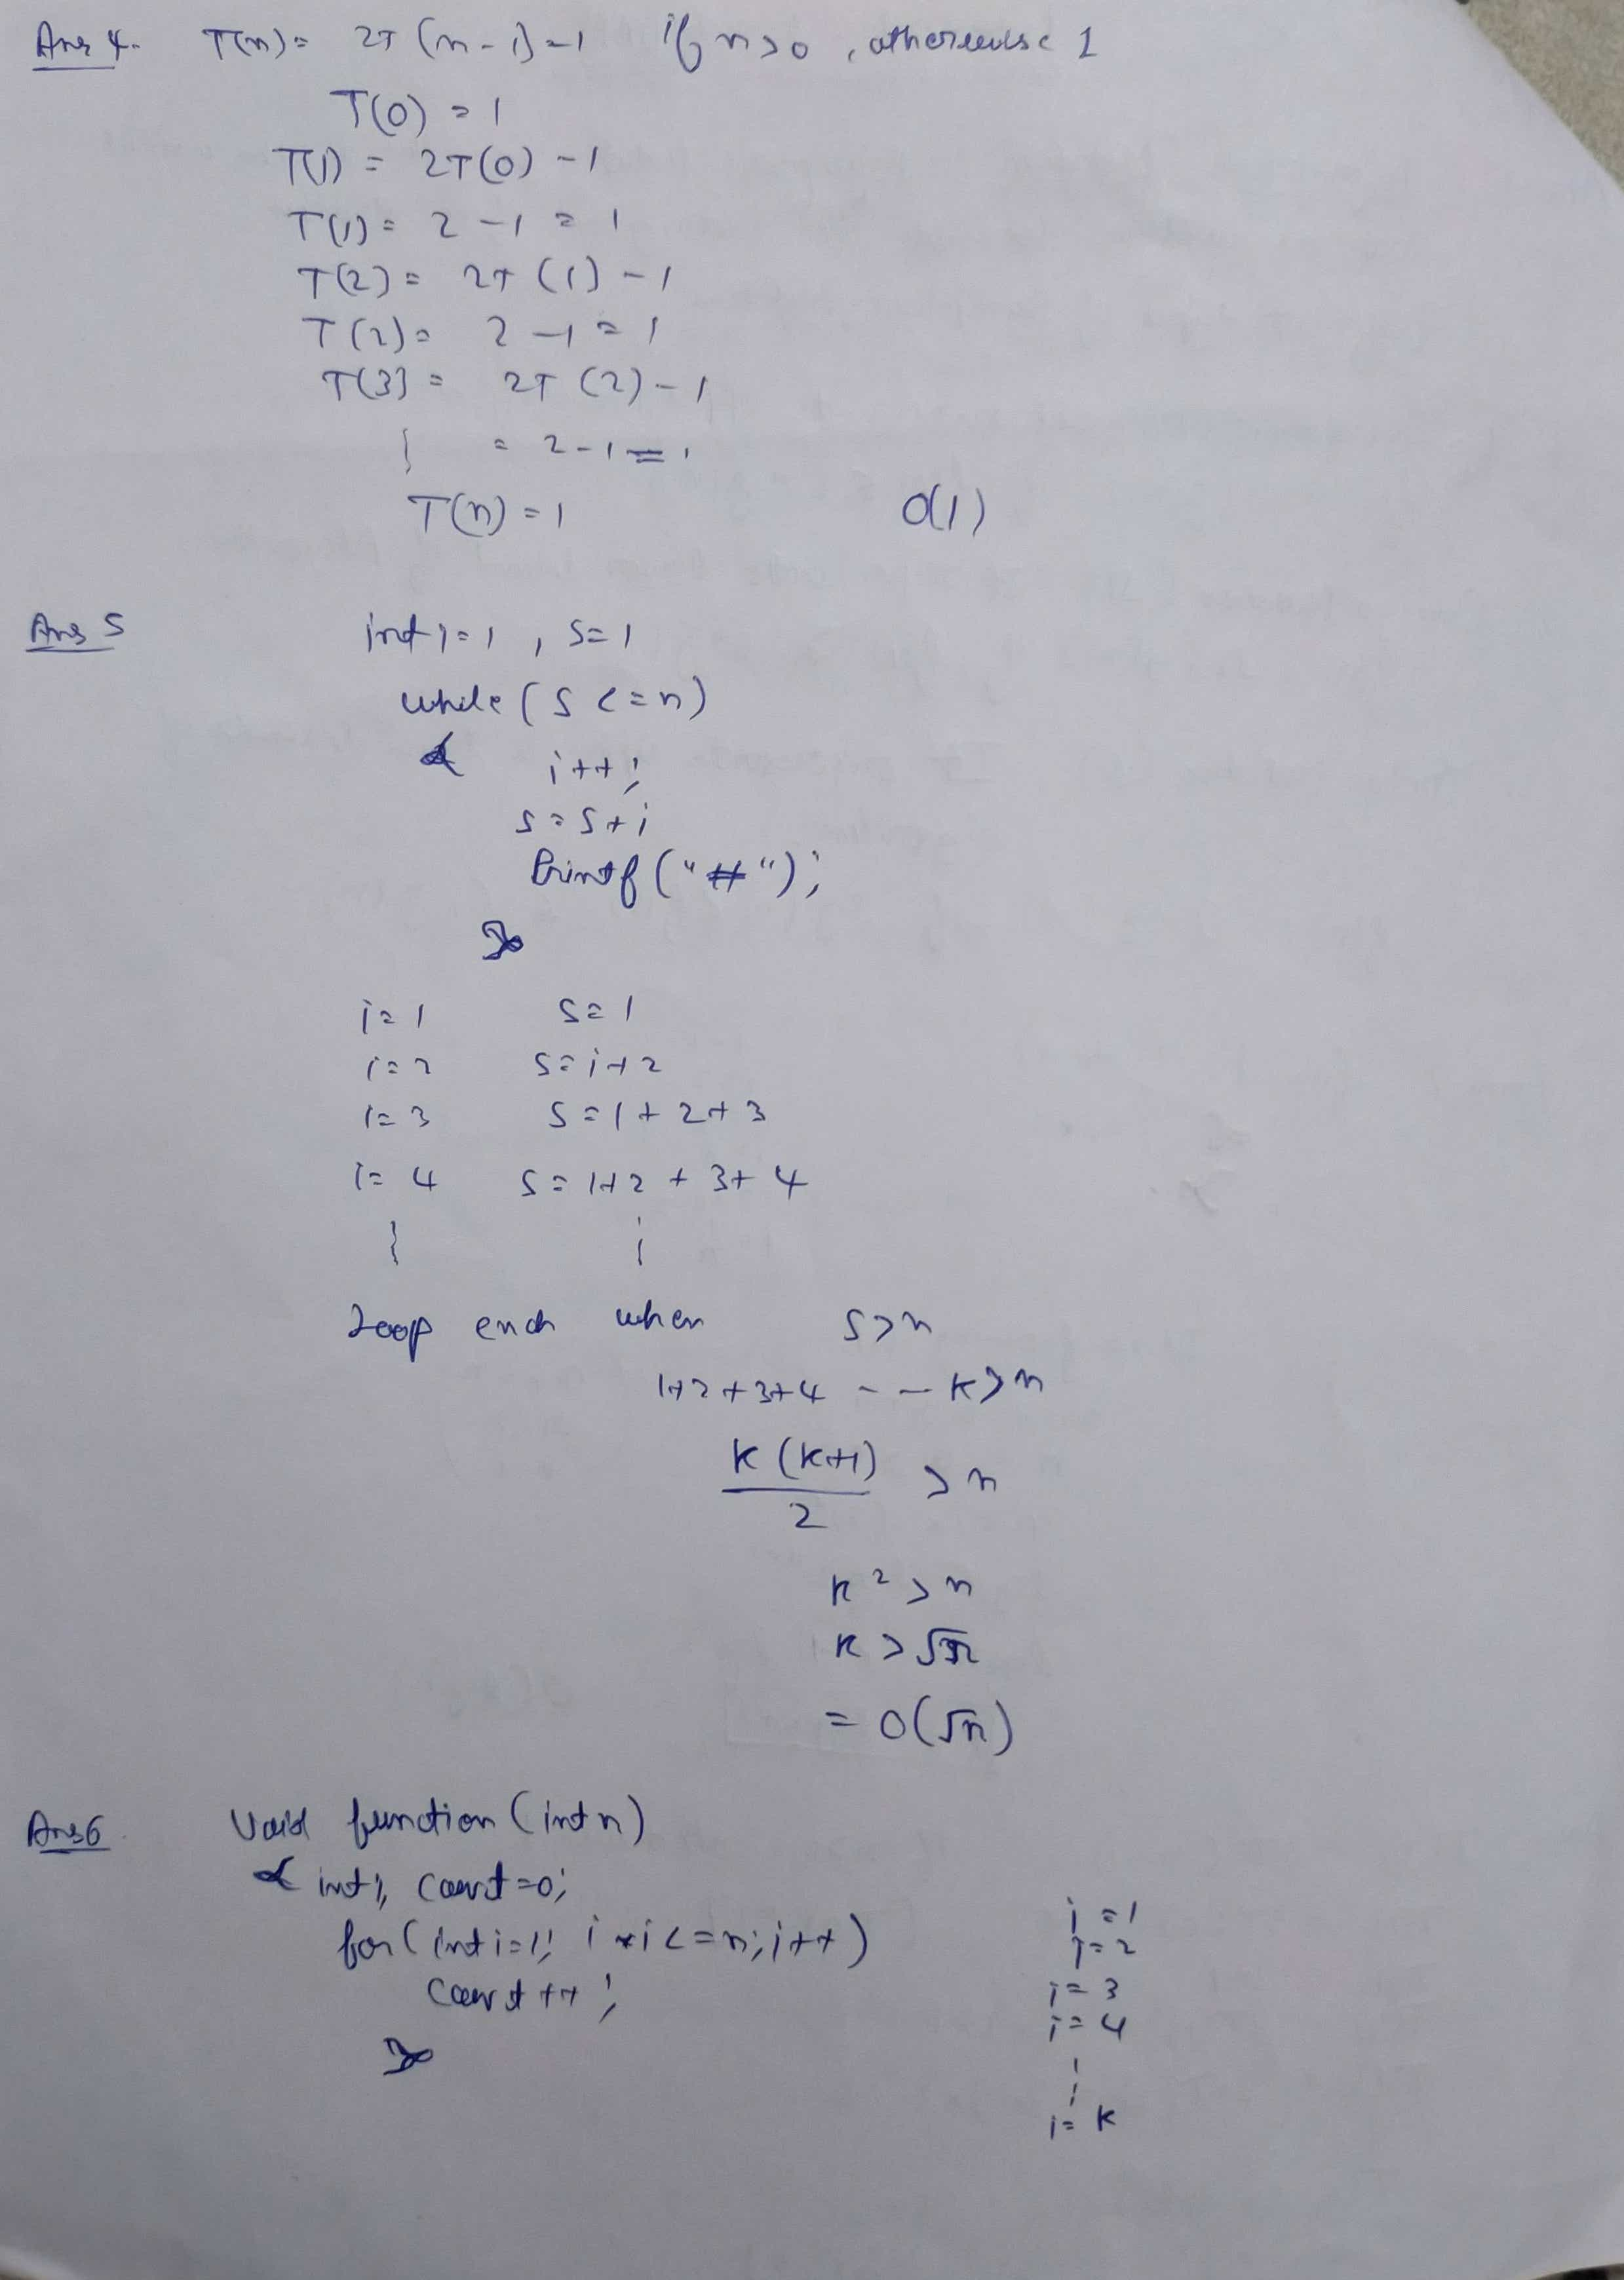 Ans 4. T(n) = 2T (n-1) - 1 if n>0 , otherwise 1
T(0) = 1
T(1) = 2T(0) - 1
T(1) = 2 - 1 = 1
T(2) = 2T (1) - 1
T(2) = 2 - 1 = 1
T(3) = 2T (2) - 1
= 2 - 1 = 1
T(n) = 1 O(1)
Ans 5 int i=1 , s=1
while (s <= n)
{ i++;
s = s+i
Printf ("#");
}
i=1 s=1
i=2 s=1+2
i=3 s=1+2+3
i=4 s=1+2+3+4
Loop ends when s>n
1+2+3+4 -- k>n
k(k+1)/2 > n
k² > n
k > √n
= O(√n)
Ans 6. Void function (int n)
{ int i, count=0;
for (int i=1; i*i<=n; i++)
count++;
}
i=1
i=2
i=3
i=4
i=k